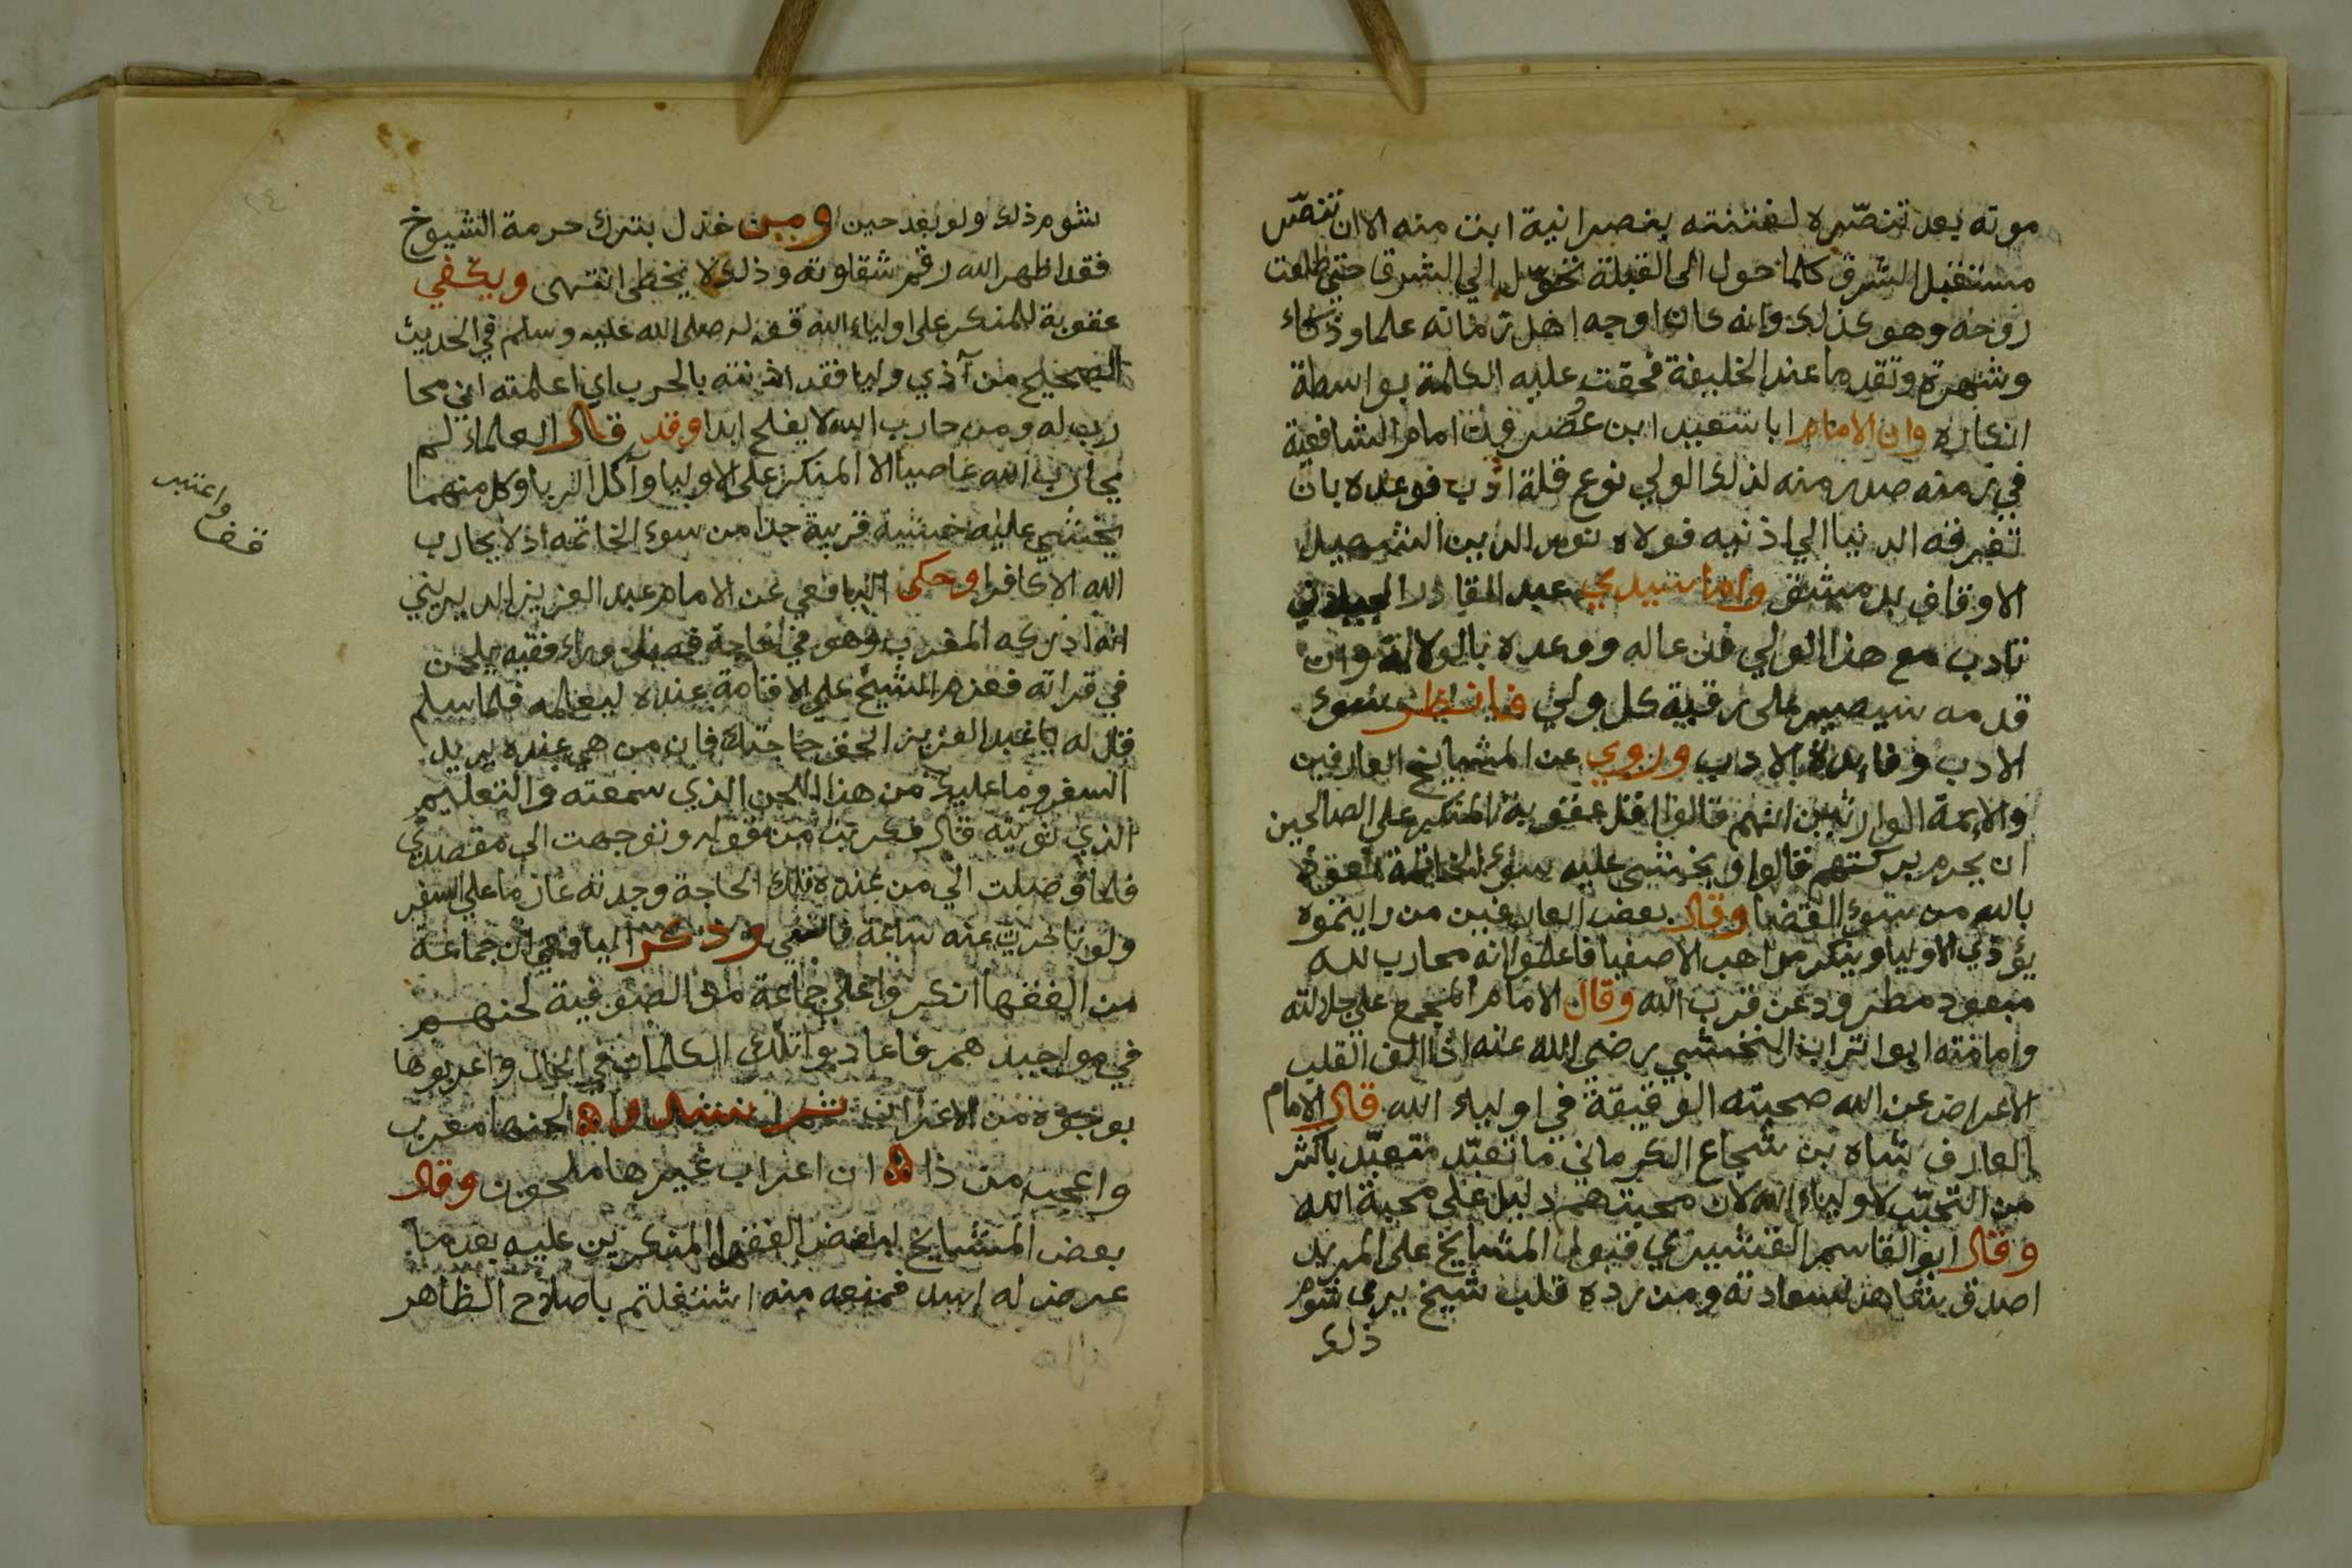 موته بعد تنصّره لفتنته بنصرانية ابنت منه الا ان تنصّر
مستقبل الشرق كلما حول الى القبلة تحوّل الي الشرق حتى طلعت
روحه وهو كذلك وانه كان اوجه اهل زمانه علما وذكاء
وشهرة وتقدما عند الخليفة فحقت عليه الكلمة بواسطة
انكاره وان الامام ابا سعيد ابن عصرون امام الشافعية
في زمنه صدر منه لذلك الولي نوع قلة ادب فوعده بان
تغرقه الدنيا الي اذنيه فولاه نور الدين الشهيد
الاوقاف بدمشق واما سيدي عبد القادر الجيلاني
تادب مع هذا الولي فدعاله ووعده بالولاية وان
قدمه سيصير على رقبة كل ولي فانظر سوء
الادب وفايدة الادب وروي عن المشايخ العارفين
والايمة الوارثين انهم قالوا اقل عقوبة المنكر على الصالحين
ان يحرم بركتهم قالوا ويخشى عليه سوء الخاتمة نعوذ
بالله من سوء القضا وقال بعض العارفين من رايتموه
يؤذي الاوليا وينكر مواهب الاصفيا فاعلموا انه محارب لله
مبعود مطرود عن قرب الله وقال الامام المجمع على جلالته
وامامته ابو اتراب النخشبي رضي الله عنه اذا الف القلب
الاعراض عن الله صحبته الوقيعة في اولياء الله قال الامام
العارف شاه بن شجاع الكرماني ما تعبّد متعبّد باكثر
من التحبّب لاولياء الله لان محبتهم دليل على محبة الله
وقال ابو القاسم القشيري قبول المشايخ على المريد
اصدق شاهد لسعادته ومن رده قلب شيخ يرى شوم
ذلك
شوم ذلك ولو بعد حين ومن خذل بترك حرمة الشيوخ
فقد اظهر الله رقم شقاوته وذلك لا يخطى انتهى ويكفي
عقوبة للمنكر على اولياء الله قوله صلى الله عليه وسلم في الحديث
الصحيح من آذي وليا فقد اذنته بالحرب اي اعلمته اني محا
رب له ومن حارب الله لا يفلح ابدا وقد قال العلماء لم
يحارب الله عاصيا الا المنكر على الاوليا وآكل الربا وكل منهما
يخشي عليه خشية قريبة جدا من سوء الخاتمه اذ لا يحارب
الله الا كافرا وحكى اليافعي عن الامام عبد العزيز الديريني
انه ادركه المغرب وهو في حاجة فصلى وراء فقيه يلحن
في قراته فعزم الشيخ على الاقامة عنده ليعلمه فلما سلم
قال له يا عبد العزيز الحق حاجتك فان من هي عنده يريد
السفر وما عليك من هذا اللحن الذي سمعته والتعليم
الذي نويته قال فكربت من قوله وتوجهت الى مقصدي
فلما وصلت الي من عنده تلك الحاجة وجدته عازما على السفر
ولو تاخرت عنه ساعة فاتني وذكر اليافعي ان جماعة
من الفقها انكروا على جماعة من الصوفية لحنهم
في مواجيدهم فاعادوا تلك الكلمات في الحال واعربوها
بوجوه من الاعراب ثم انشدوا لحنها معرب
واعجب من ذا ان اعراب غيرها ملحون وقال
بعض المشايخ لبعض الفقها المنكرين عليه بعد ما
عرض له اسد فمنعه منه اشتغلتم باصلاح الظاهر
واعتبر
قف